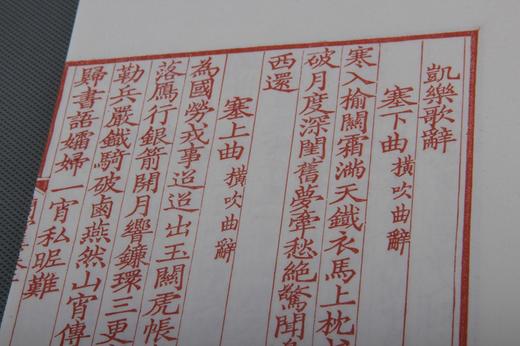 凱樂歌辭
塞下曲 橫吹曲辭
寒入榆關霜滿天鐵衣馬上枕
破月度深閨舊夢牽愁絕驚聞
西還
塞上曲 橫吹曲辭
為國勞戎事迢迢出玉關虎帳
落鴈行銀箭開月響鐮環三更
勒兵嚴鐵騎破鹵燕然山宵傳
歸書語孀婦一宵私昵難